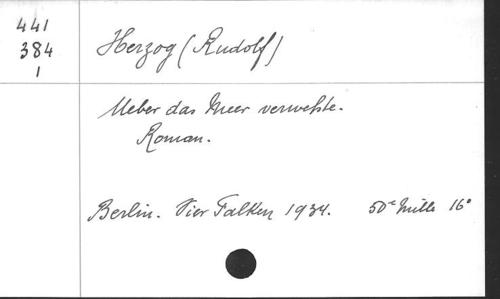 441
384
1
Herzog (Rudolf)
Ueber das Meer verwehte.
Roman.
Berlin. Vier Falken 1934. 50e mille 16°